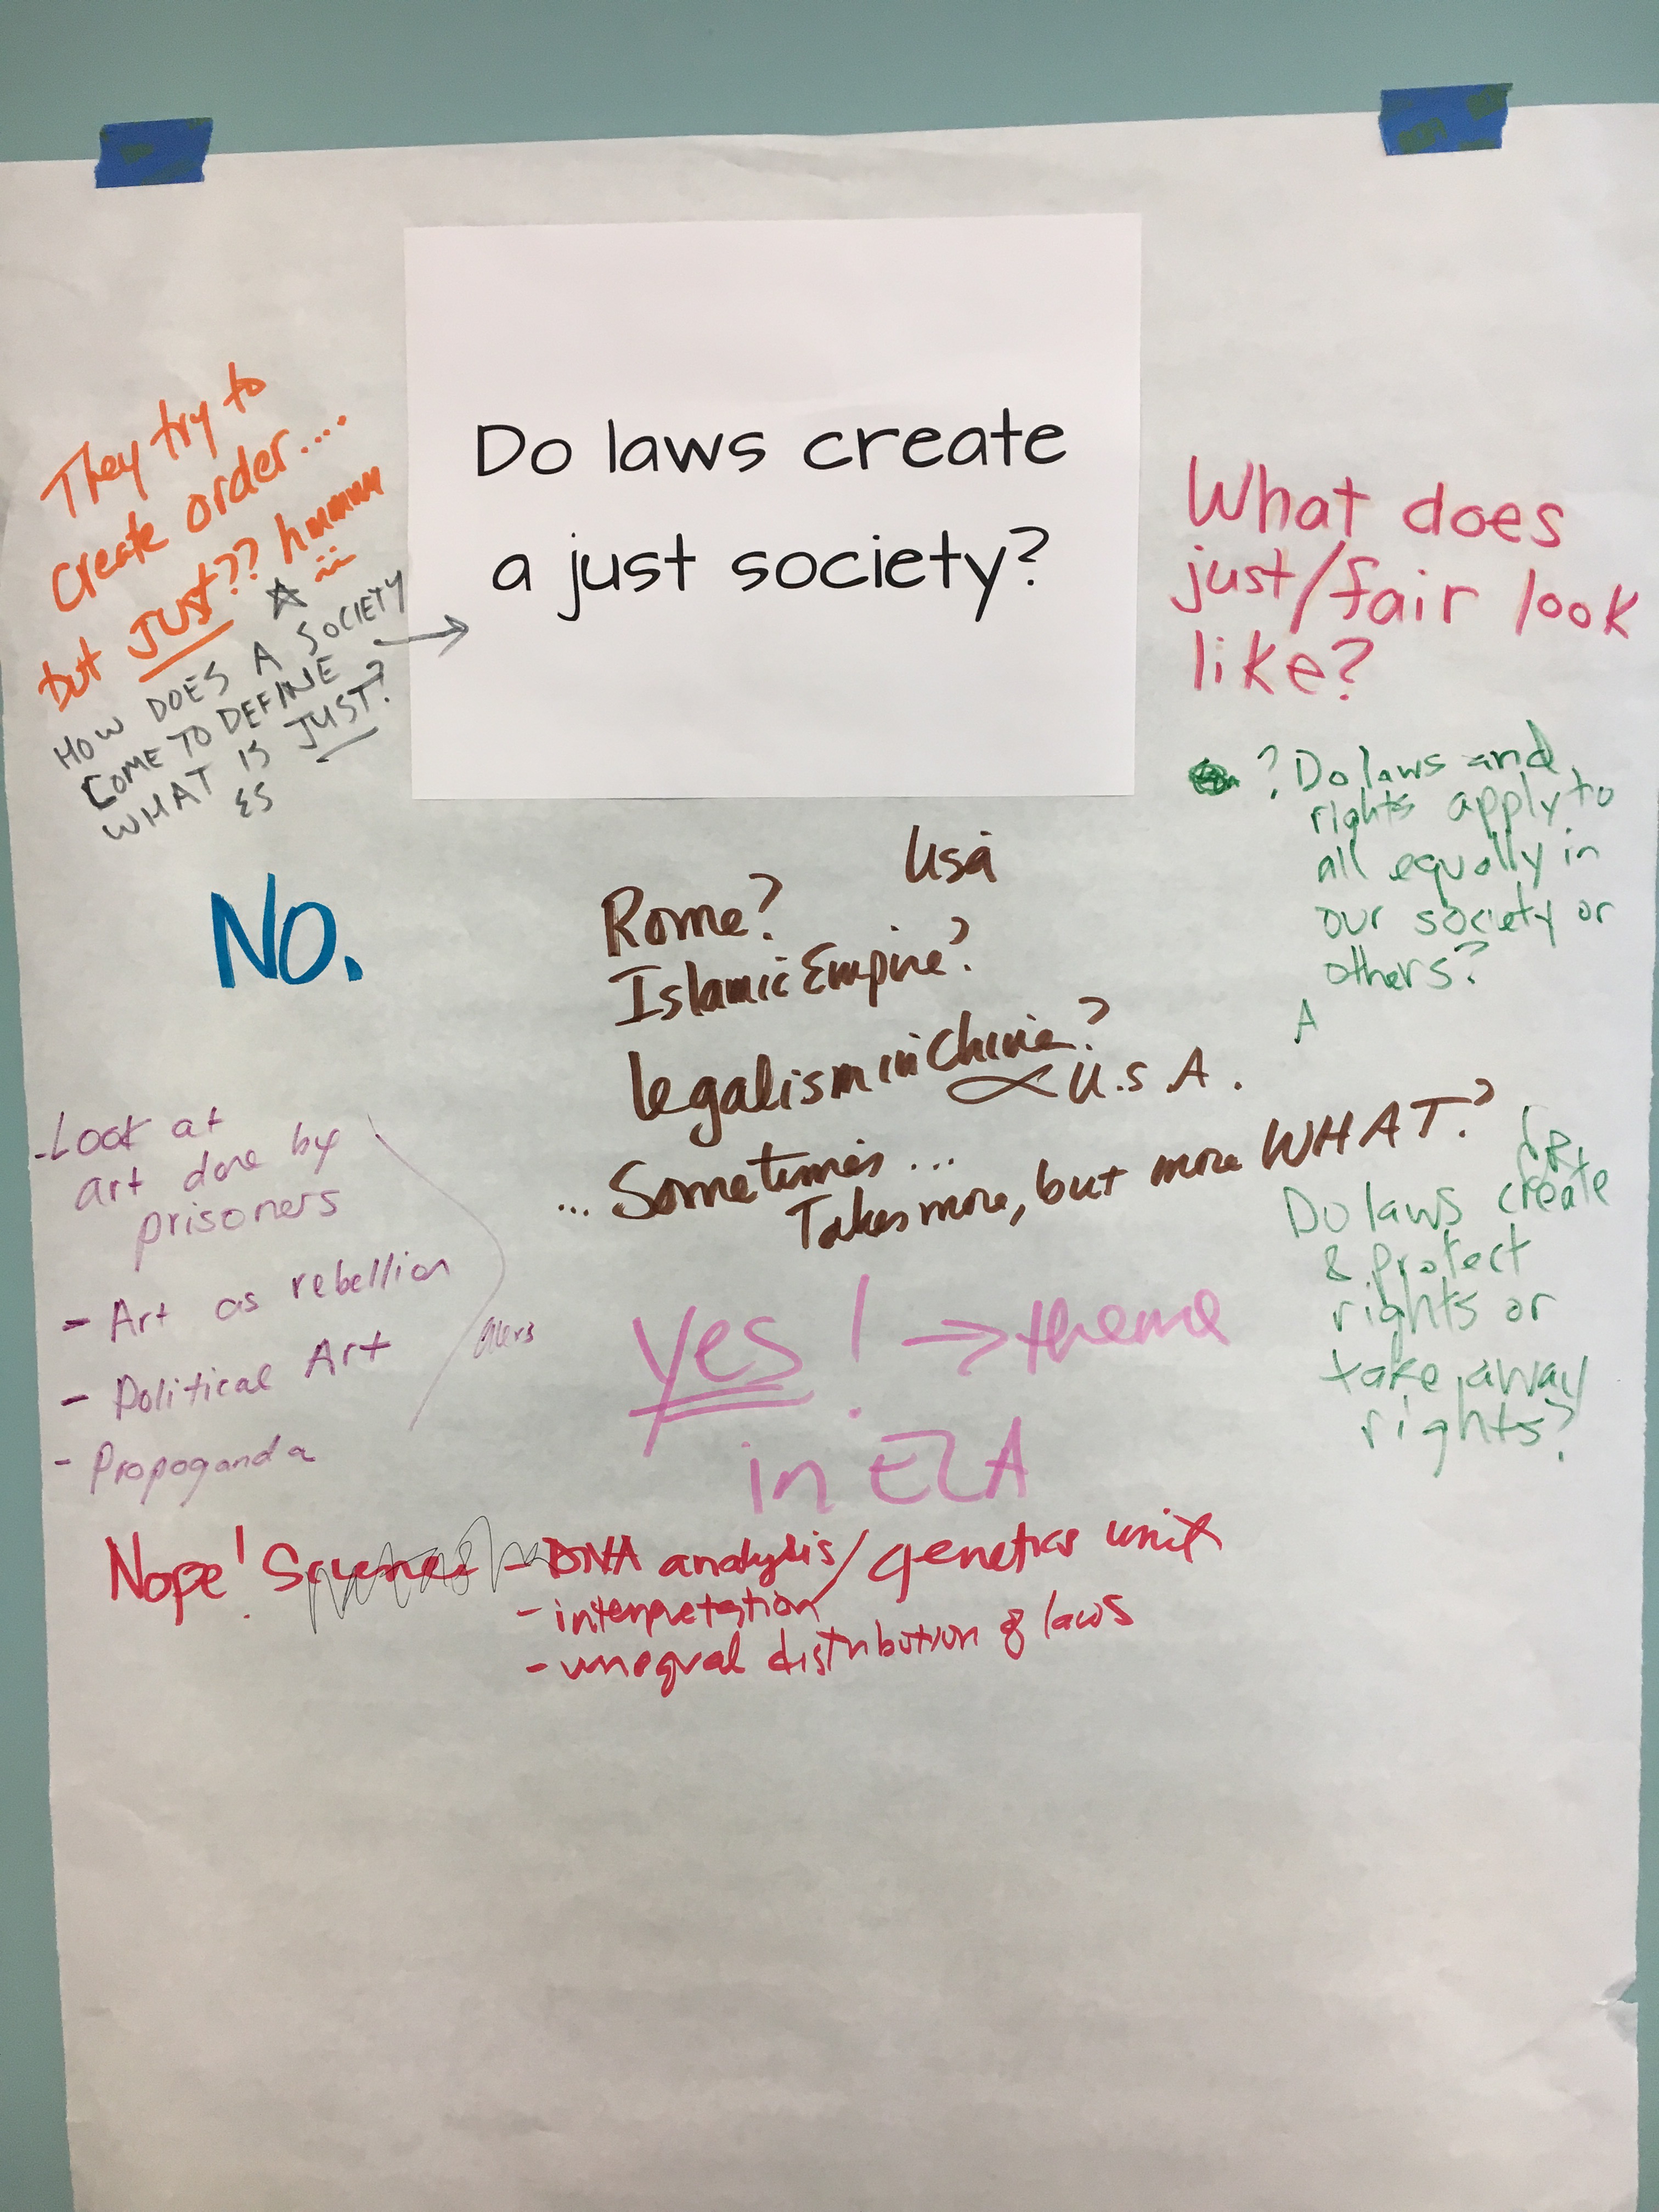 Do laws create
a just society?
They try to
create order....
but JUST?? hmmmm
HOW DOES A SOCIETY
COME TO DEFINE
WHAT IS JUST?
ES
What does
just/fair look
like?
? Do laws and
rights apply to
all equally in
our society or
others?
A
NO.
Usa
Rome?
Islamic Empire?
legalism in China?
U.S.A.
... Sometimes ...
Takes more, but more WHAT?
OR,
Do laws create
& protect
rights or
take away
rights?
- Look at
art done by
prisoners
- Art as rebellion
- Political Art
- Propoganda
yes! → theme
in ELA
Nope! Science - DNA analysis/genetics unit
- interpretation
- unequal distribution of laws